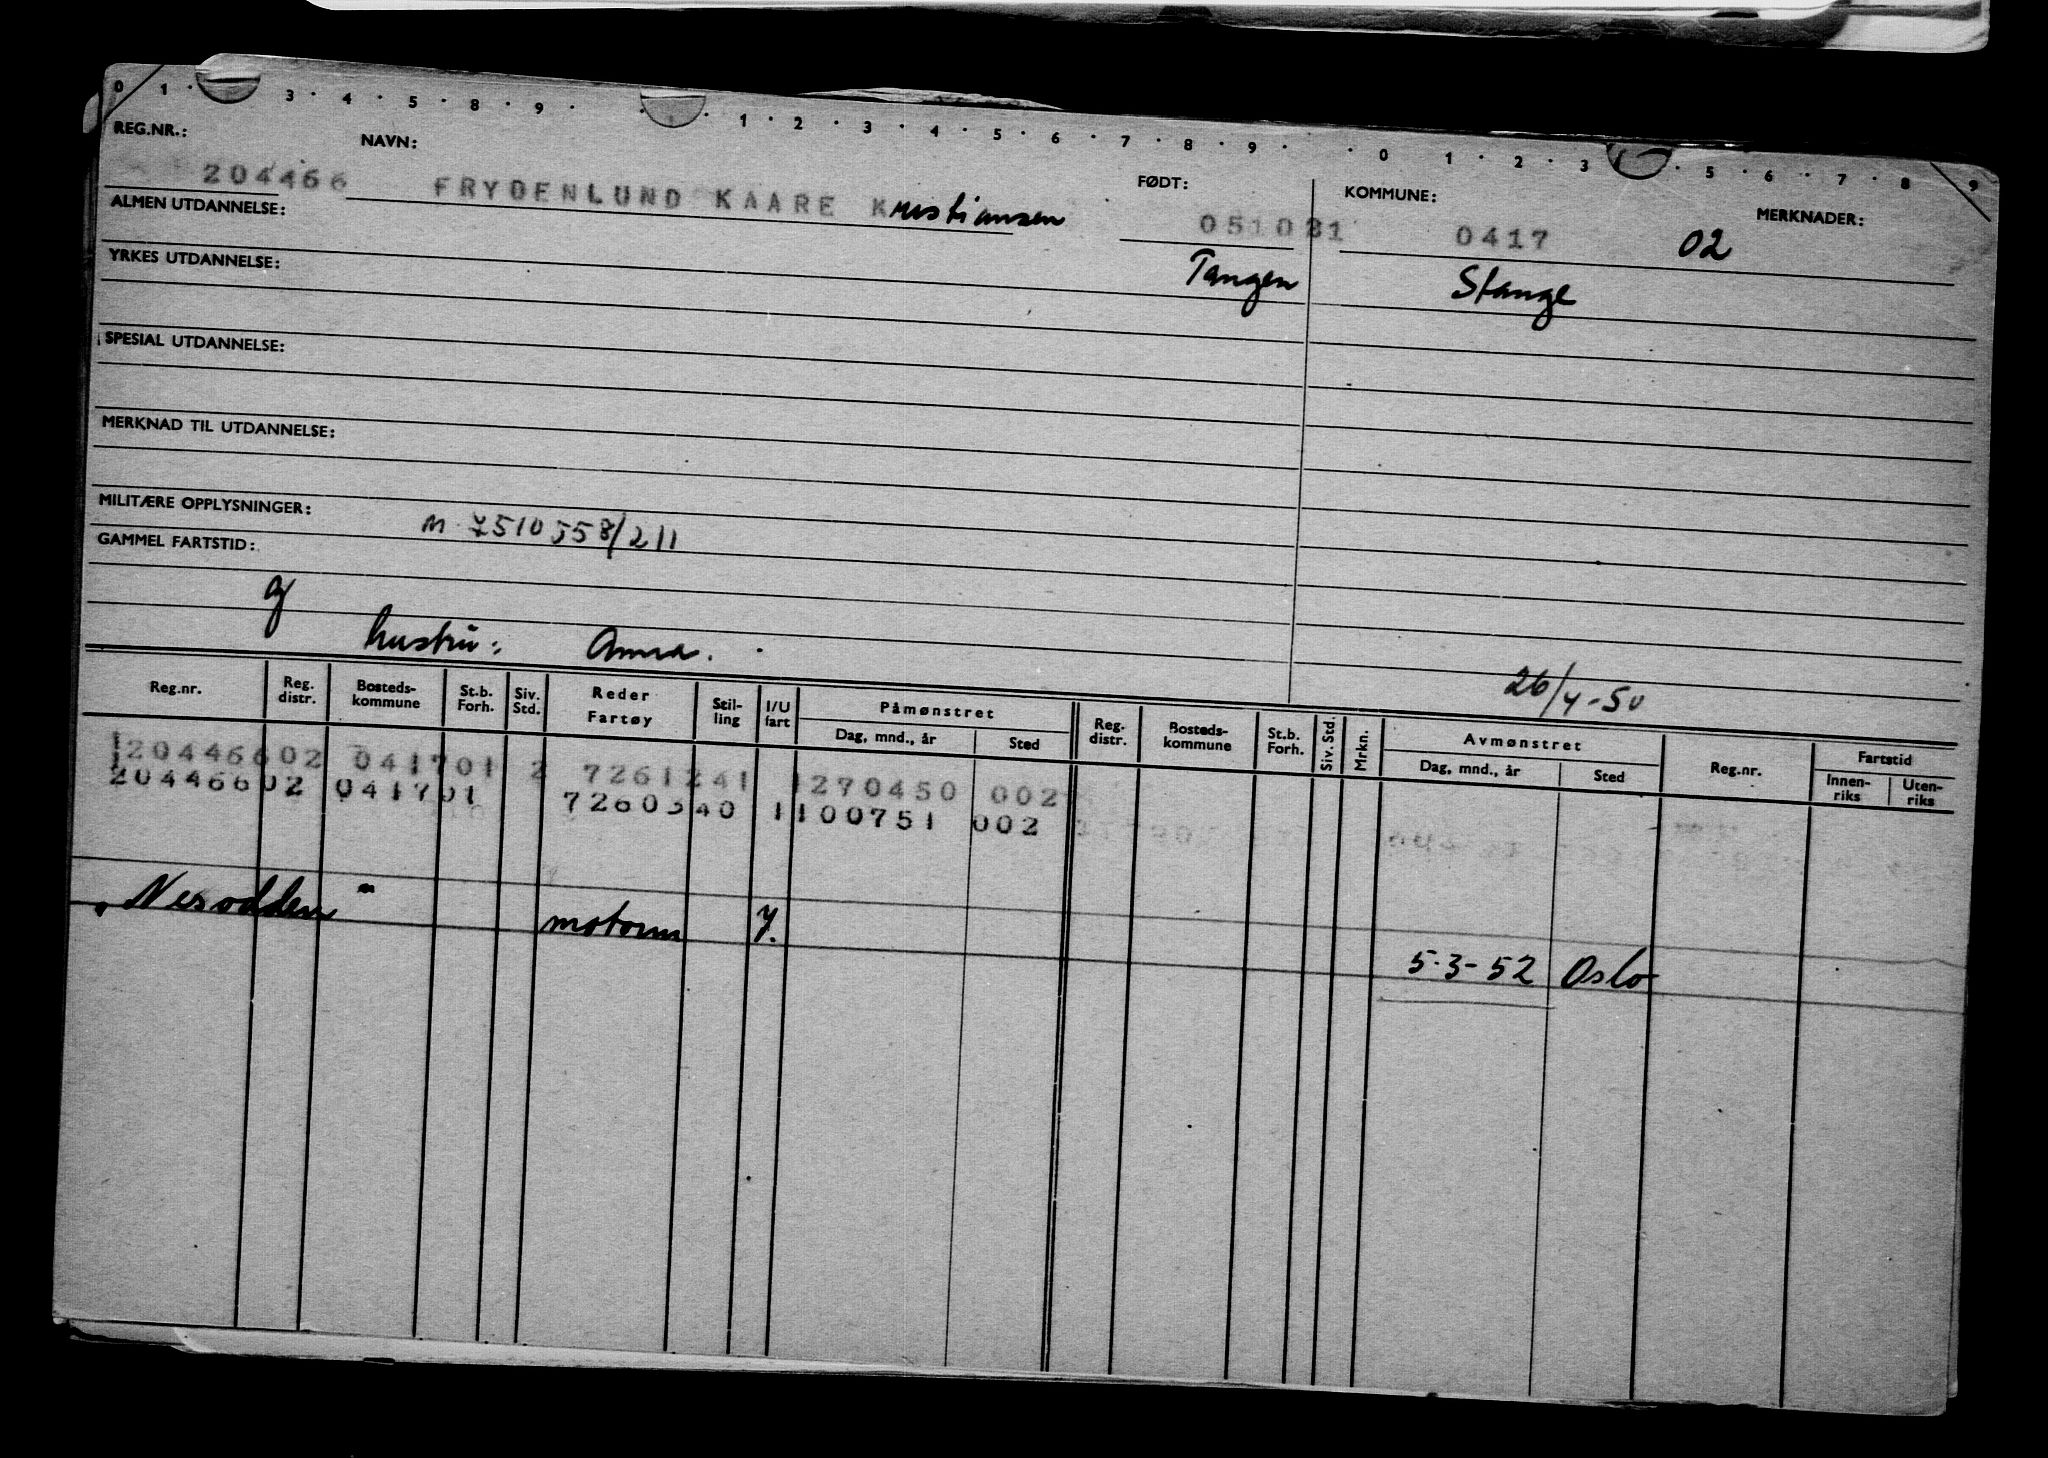 0 1 · 3 · 4 · 5 · 8 · 9 · · 1 · 2 · 3 · 4 · 5 · 6 · 7 · 8 · 9 · · 0 1 · 2 · 3 5 · 6 · 7 · 8 · 9
REG.NR.: NAVN: FØDT: KOMMUNE: MERKNADER:
204466 FRYDENLUND KAARE Kristiansen 051021 0417 02
ALMEN UTDANNELSE:
Tangen Stange
YRKES UTDANNELSE:
SPESIAL UTDANNELSE:
MERKNAD TIL UTDANNELSE:
MILITÆRE OPPLYSNINGER:
M 7510558/211
GAMMEL FARTSTID:
g
hustru: Anna.
26/4-50
Reg.nr. Reg. distr. Bosteds-kommune St.b. Forh. Siv. Std. Reder Fartøy Stil-ling I/U fart Påmønstret Dag, mnd., år Sted Reg. distr. Bosteds-kommune St.b. Forh. Siv. Std. Mrkn. Avmønstret Dag, mnd., år Sted Reg.nr. Fartstid Innen-riks Uten-riks
20446602 041701 2 7261241 1270450 002
20446602 041701 7260340 1100751 002
"Nesodden" motorm 7.
5-3-52 Oslo